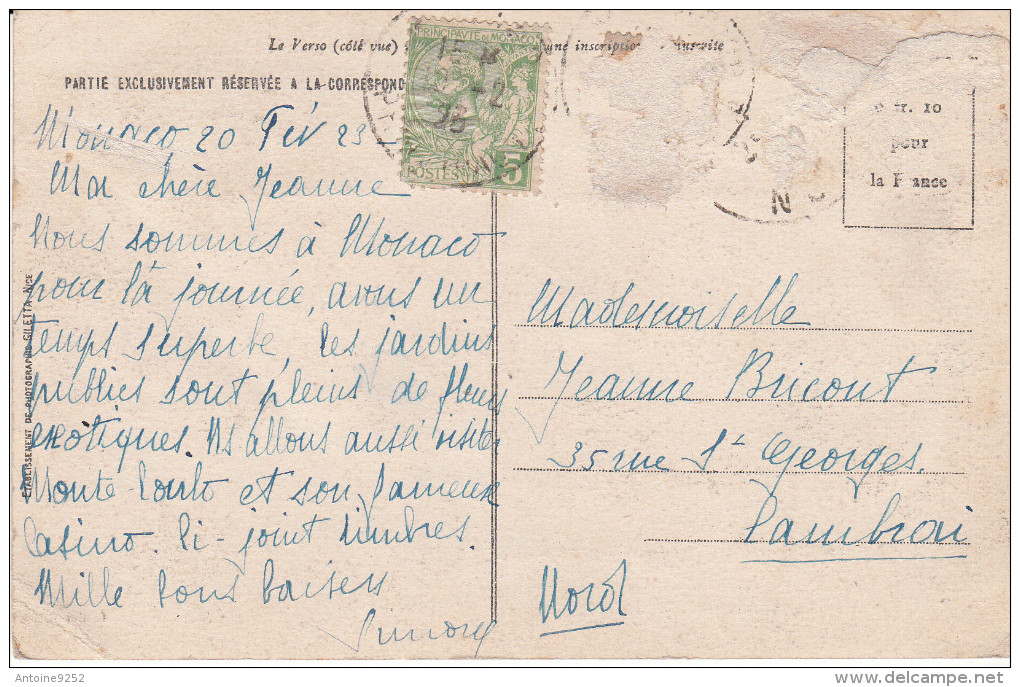 Le Verso (côté vue) une inscription manuscrite
PARTIE EXCLUSIVEMENT RÉSERVÉE A LA CORRESPOND
PRINCIPAUTÉ DE MONACO
POSTES 5
10
pour
la France
Monaco 20 Fév 23
Ma chère Jeanne
Nous sommes à Monaco
pour la journée, avons un
temps superbe, les jardins
publics sont pleins de fleurs
exotiques. Ns allons aussi visiter
Monte-Carlo et son fameux
Casino. Ci-joint timbres.
Mille bons baisers
Mademoiselle
Jeanne Bricout
35 rue St Georges.
Cambrai
Nord
ÉTABLISSEMENT DE PHOTOGRAPHIE GILETTA NICE
Antoine9252
delcampe.net